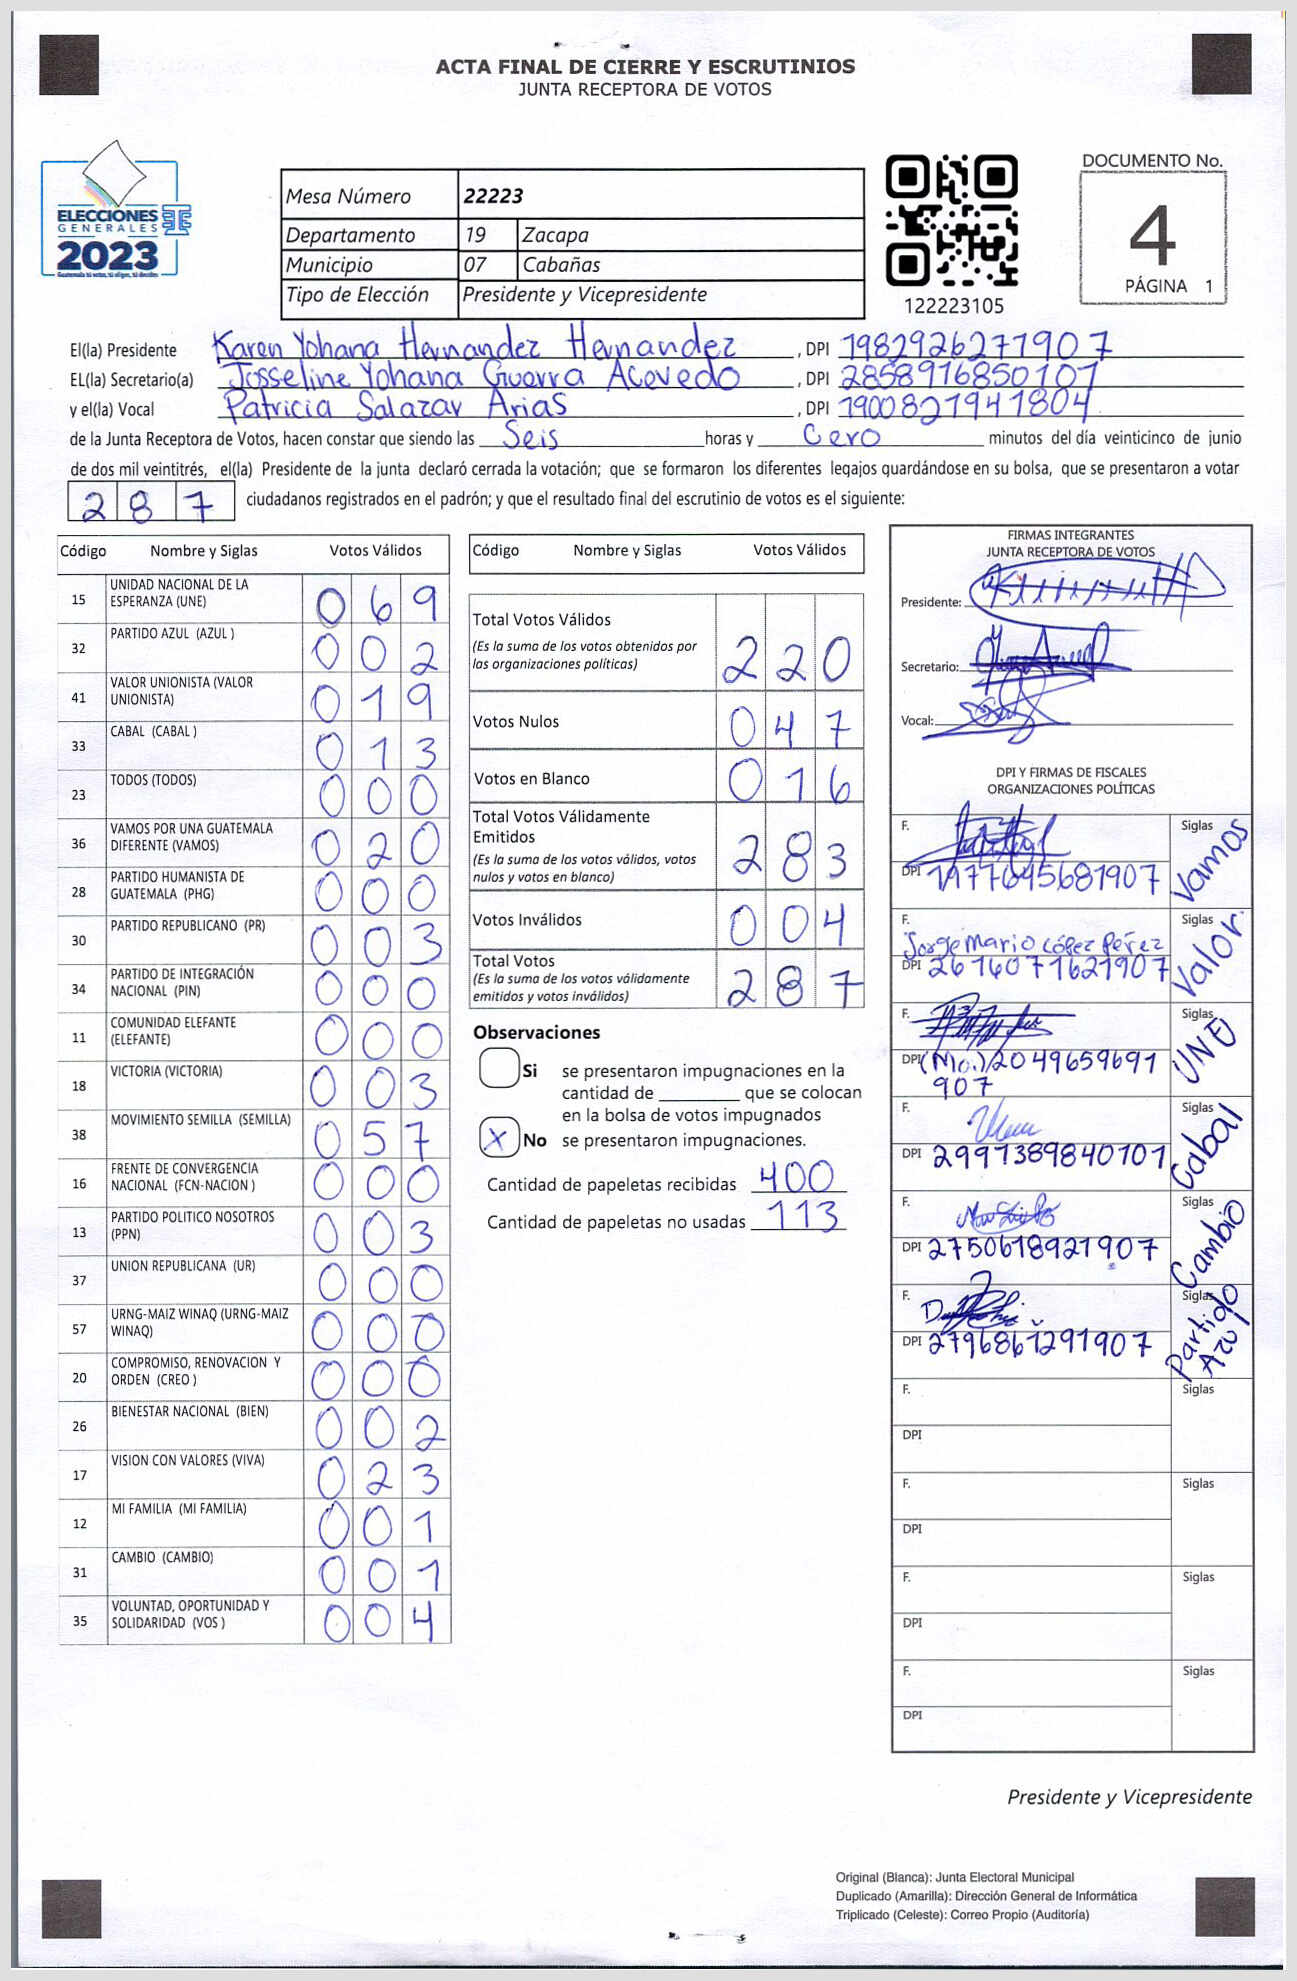 ACTA FINAL DE CIERRE Y ESCRUTINIOS
JUNTA RECEPTORA DE VOTOS
ELECCIONES
GENERALES
2023
Mesa Número 22223
Departamento 19 Zacapa
Municipio 07 Cabañas
Tipo de Elección Presidente y Vicepresidente
122223105
DOCUMENTO No.
4
PÁGINA 1
El(la) Presidente Karen Yohana Hernandez Hernandez , DPI 1982926271907
EL(la) Secretario(a) Josseline Yohana Guerra Acevedo , DPI 2858916850101
y el(la) Vocal Patricia Salazar Arias , DPI 1900821941804
de la Junta Receptora de Votos, hacen constar que siendo las Seis horas y Cero minutos del día veinticinco de junio
de dos mil veintitrés, el(la) Presidente de la junta declaró cerrada la votación; que se formaron los diferentes legajos guardándose en su bolsa, que se presentaron a votar
287 ciudadanos registrados en el padrón; y que el resultado final del escrutinio de votos es el siguiente:
Código Nombre y Siglas Votos Válidos
15 UNIDAD NACIONAL DE LA ESPERANZA (UNE) 069
32 PARTIDO AZUL (AZUL ) 002
41 VALOR UNIONISTA (VALOR UNIONISTA) 019
33 CABAL (CABAL ) 013
23 TODOS (TODOS) 000
36 VAMOS POR UNA GUATEMALA DIFERENTE (VAMOS) 020
28 PARTIDO HUMANISTA DE GUATEMALA (PHG) 000
30 PARTIDO REPUBLICANO (PR) 003
34 PARTIDO DE INTEGRACIÓN NACIONAL (PIN) 000
11 COMUNIDAD ELEFANTE (ELEFANTE) 000
18 VICTORIA (VICTORIA) 003
38 MOVIMIENTO SEMILLA (SEMILLA) 057
16 FRENTE DE CONVERGENCIA NACIONAL (FCN-NACION ) 000
13 PARTIDO POLITICO NOSOTROS (PPN) 003
37 UNION REPUBLICANA (UR) 000
57 URNG-MAIZ WINAQ (URNG-MAIZ WINAQ) 000
20 COMPROMISO, RENOVACION Y ORDEN (CREO ) 000
26 BIENESTAR NACIONAL (BIEN) 002
17 VISION CON VALORES (VIVA) 023
12 MI FAMILIA (MI FAMILIA) 001
31 CAMBIO (CAMBIO) 001
35 VOLUNTAD, OPORTUNIDAD Y SOLIDARIDAD (VOS ) 004
Código Nombre y Siglas Votos Válidos
Total Votos Válidos
(Es la suma de los votos obtenidos por las organizaciones políticas) 220
Votos Nulos 047
Votos en Blanco 016
Total Votos Válidamente Emitidos
(Es la suma de los votos válidos, votos nulos y votos en blanco) 283
Votos Inválidos 004
Total Votos
(Es la suma de los votos válidamente emitidos y votos inválidos) 287
Observaciones
Si se presentaron impugnaciones en la
cantidad de ________ que se colocan
en la bolsa de votos impugnados
X No se presentaron impugnaciones.
Cantidad de papeletas recibidas 400
Cantidad de papeletas no usadas 113
FIRMAS INTEGRANTES
JUNTA RECEPTORA DE VOTOS
Presidente:
Secretario:
Vocal:
DPI Y FIRMAS DE FISCALES
ORGANIZACIONES POLÍTICAS
F. Siglas Vamos
DPI 1977645681907
F. Jorge Mario López Pérez Siglas Valor
DPI 2616071621907
F. Siglas UNE
DPI (Mo.) 2049659691
907
F. Siglas Cabal
DPI 2991389840101
F. Siglas Cambio
DPI 2750618921907
F. Siglas Partido Azul
DPI 2796861291907
F. Siglas
DPI
F. Siglas
DPI
F. Siglas
DPI
F. Siglas
DPI
Presidente y Vicepresidente
Original (Blanca): Junta Electoral Municipal
Duplicado (Amarilla): Dirección General de Informática
Triplicado (Celeste): Correo Propio (Auditoría)